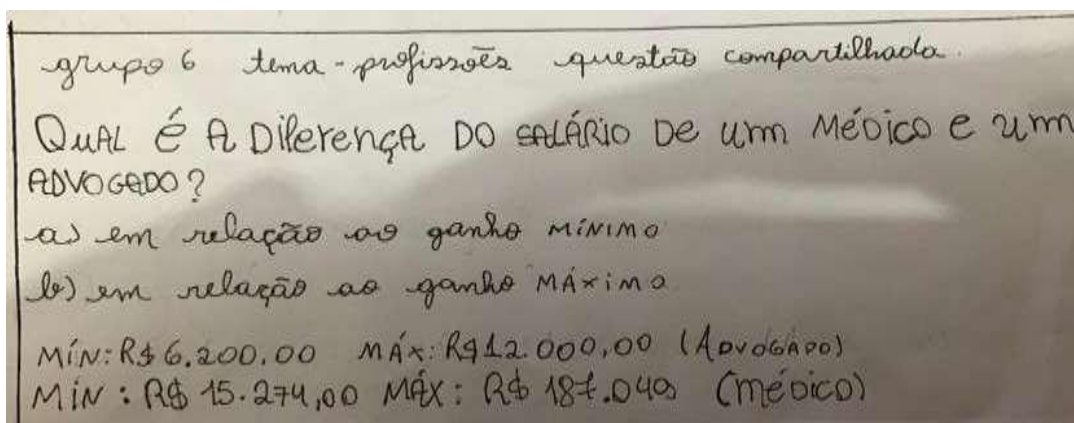 grupo 6 tema - profissões questão compartilhada.
QUAL É A DIFERENÇA DO SALÁRIO DE UM MÉDICO E UM
ADVOGADO?
a) em relação ao ganho MÍNIMO
b) em relação ao ganho MÁXIMO
MÍN: R$ 6.200,00 MÁX: R$ 12.000,00 (ADVOGADO)
MÍN: R$ 15.274,00 MÁX: R$ 187.049 (MÉDICO)